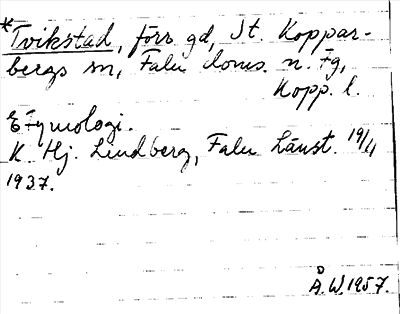 *Tvikstad, förr gd, St. Koppar-
bergs sn, Falu doms. n. Fg,
Kopp. l.
Etymologi.
K. Hj. Lindberg, Falu Länst. 19/4
1937.
Å.W.1957.